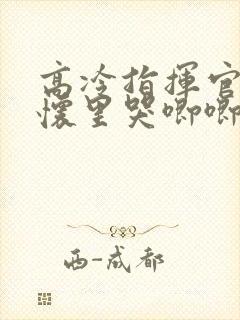 高冷指揮官
懷里哭唧唧
西-成都